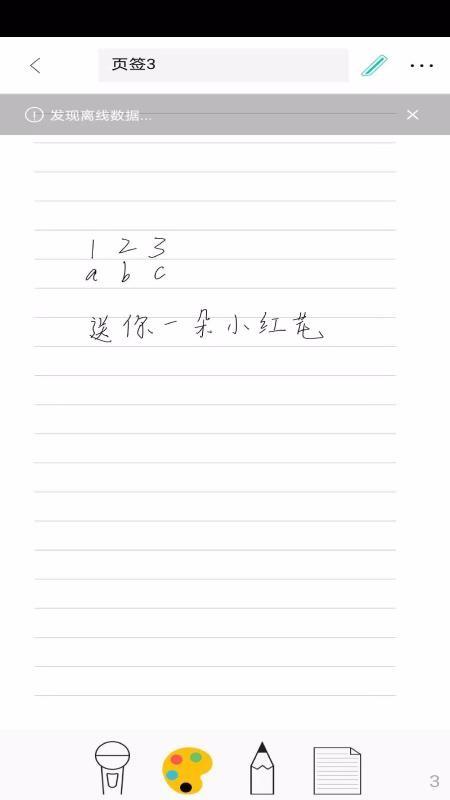 页签3
发现离线数据...
1 2 3
a b c
送你一朵小红花
3